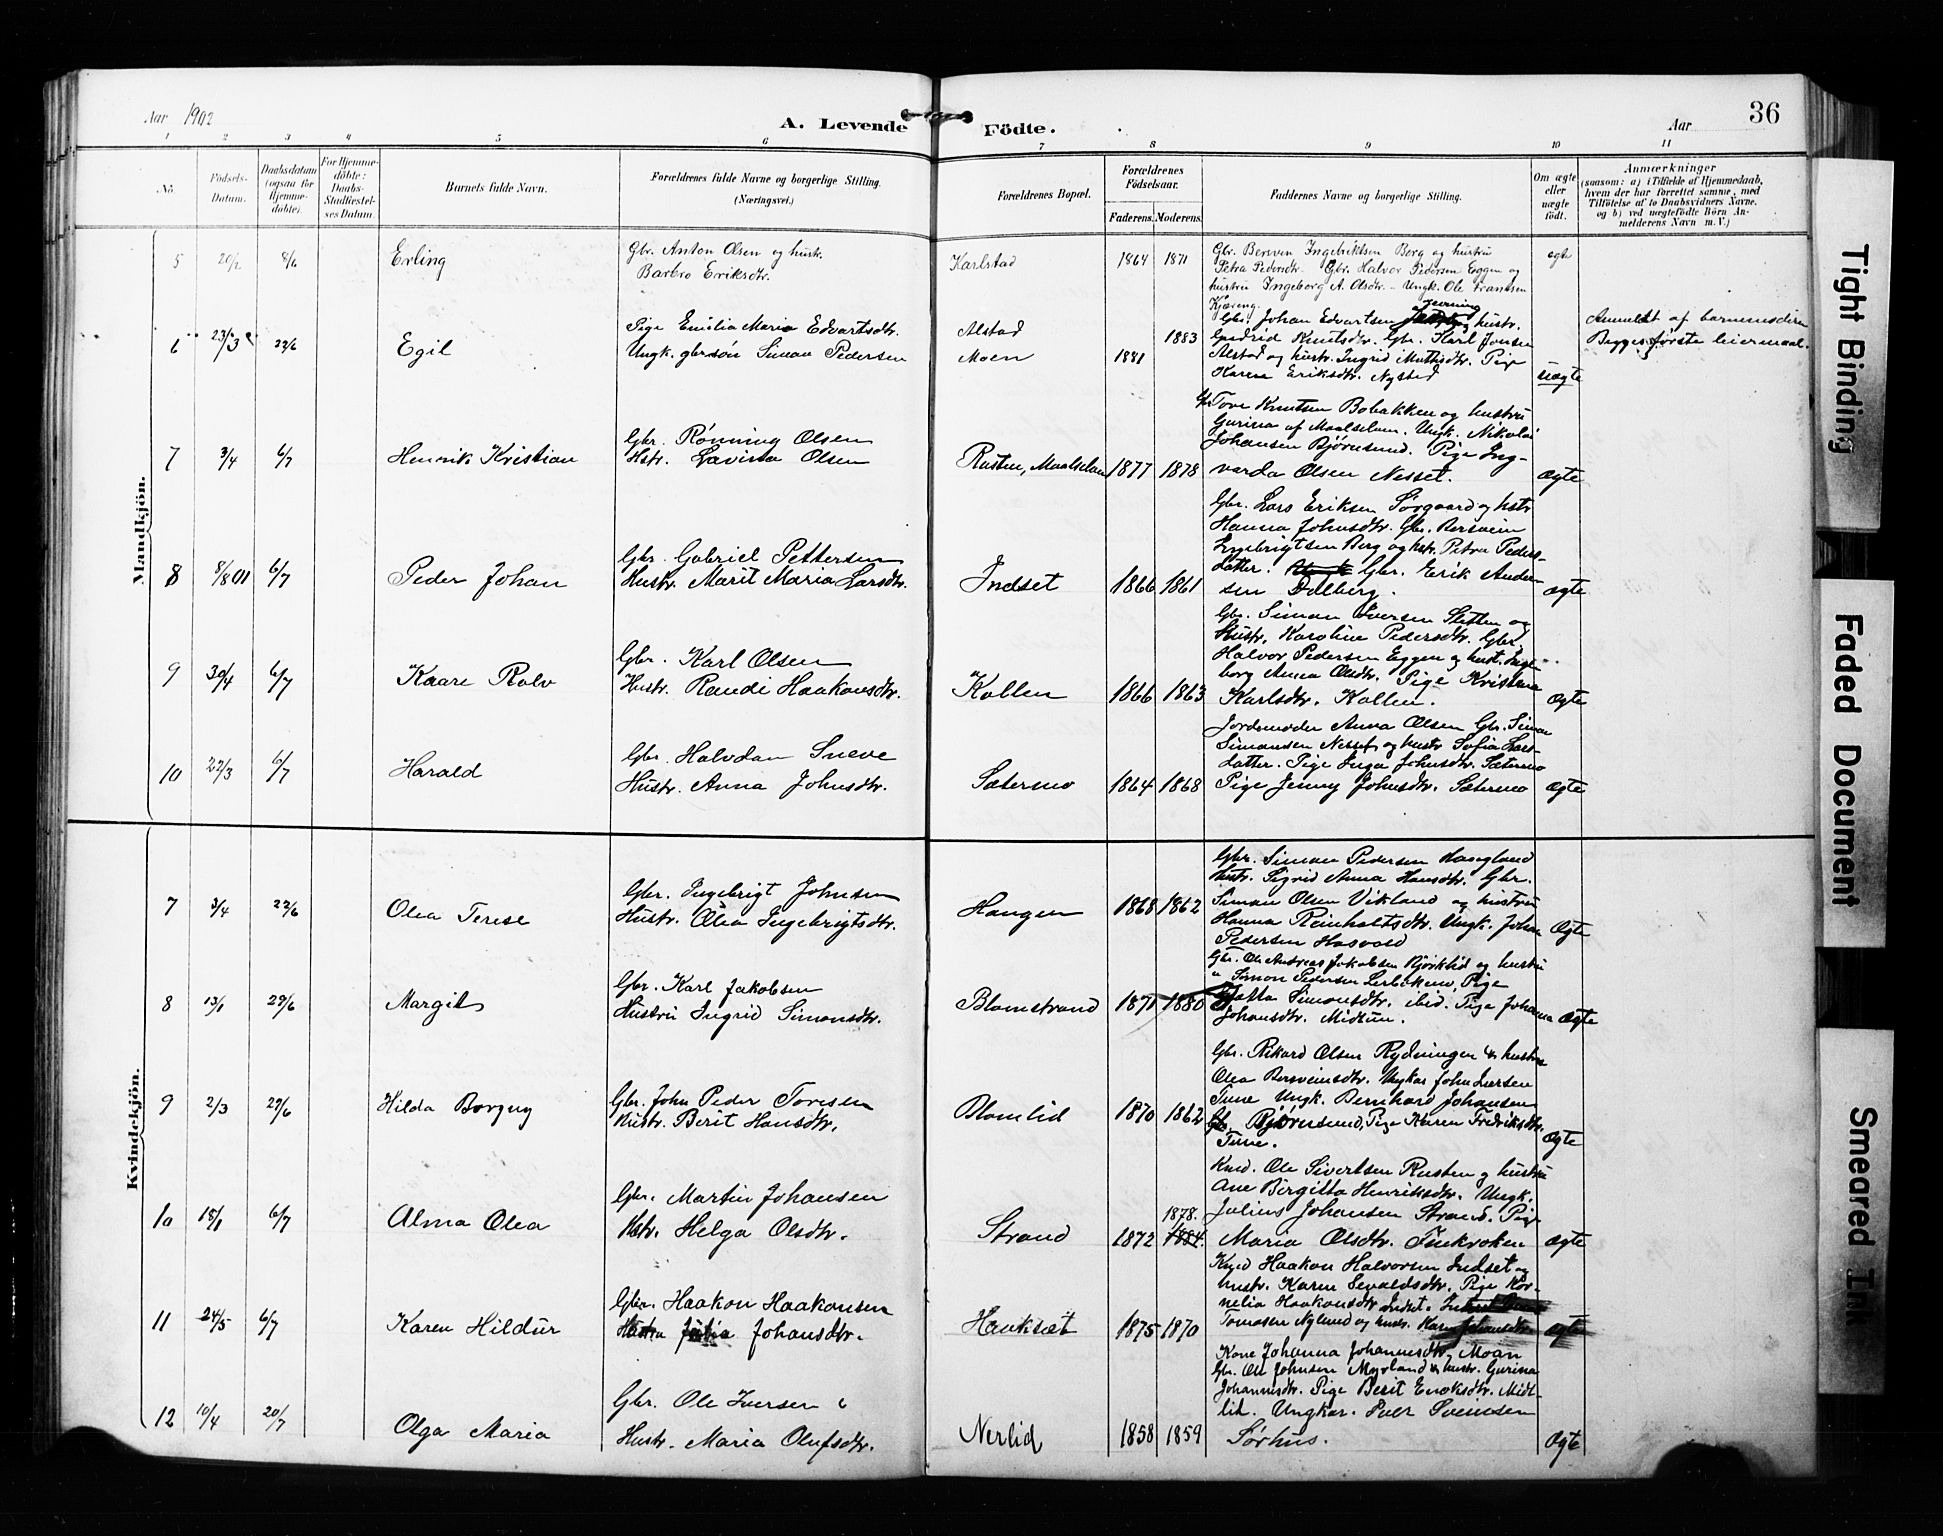 Aar 1902
A. Levende Födte.
Aar
36
1 2 3 4 5 6 7 8 9 10 11
No.
Födsels-Datum.
Daabsdatum (ogsaa for Hjemme-döbte).
For Hjemme-döbte: Daabs-Stadfæstel-ses Datum.
Barnets fulde Navn.
Forældrenes fulde Navne og borgerlige Stilling.
(Næringsvei.)
Forældrenes Bopæl.
Forældrenes Födselsaar.
Faderens. Moderens.
Faddernes Navne og borgerlige Stilling.
Om ægte eller uægte födt.
Anmærkninger
(saasom: a) i Tilfælde af Hjemmedaab,
hvem der har forrettet samme, med
Tilföielse af to Daabsvidners Navne.
og b) ved uægtefödte Börn An-
melderens Navn m. V.)
Mandkjön.
5 20/2 8/6 Erling
Gbr. Anton Olsen og hustr.
Barbro Eriksdtr.
Karlstad 1864 1871
Gbr. Bersven Ingebriktsen Berg og hustru
Petra Pedersdtr. Gbr. Halvor Pedersen Eggen og
hustru Ingeborg A. Olsdtr. - Ungk. Ole Frantsen
Kjæreng.
egte
6 23/3 22/6 Egil
Pige Emilia Maria Edvartsdtr.
Ungk. gbrsøn Simon Pedersen
Alstad
Moen 1881 1883
Gbr. Johan Edvartsen hustr.
Gudrid Knutsdtr. Gbr. Karl Jonsen
Alstad og hustr. Ingrid Mathisdtr. Pige
Karen Eriksdtr. Nysted
uægte
Anmeldt af barnemoderen
Begges første leiermaal.
7 3/4 6/7 Henrik Kristian
Gbr. Rønning Olsen
Hstr. Lavina Olsen
Rusten, Maalselven 1877 1878
Tore Knutsen Bobakken og hustru
Gurina af Maalselven. Ungk. Nikolai
Johansen Bjørnsund. Pige Ing-
varda Olsen Nesset.
ægte
8 8/8 01 6/7 Peder Johan
Gbr. Gabriel Pettersen
Hustr. Marit Maria Larsdtr.
Indset 1866 1861
Gbr. Lars Eriksen Sørgaard og hstr
Hanna Johnsdtr. Gbr. Bersvein
Ingebrigtsen Berg og hstr. Petra Peders-
datter. Gbr. Erik Ander-
sen Dalberg.
ægte
9 30/4 6/7 Kaare Rolv
Gbr. Karl Olsen
Hustr. Randi Haakonsdtr.
Kollen 1866 1863
Gbr. Simon Iversen Sletten og
Hustr. Karoline Pedersdtr. Gbr.
Halvor Pedersen Eggen og hust. Inge-
borg Anna Olsdtr. Pige Kristina
Karlsdtr. Kollen.
ægte
10 27/3 6/7 Harald
Gbr. Halvdan Sneve
Hustr. Anna Johnsdtr.
Sætermo 1864 1868
Jordemoder Anna Olsen Gbr. Simon
Simonsen Nesset og hustr Sofia Lars-
datter. Pige Inga Johnsdtr. Sætermo
Pige Jenny Johnsdtr. Sætermo
ægte
Kvindekjön.
7 3/4 22/6 Olea Terese
Gbr. Ingebrigt Johnsen
Hustr. Olea Ingebrigtsdtr.
Haugen 1868 1862
Gbr. Simon Pedersen Haugland
Hustr. Sigrid Anna Hansdtr. Gbr.
Simon Olsen Vikland og hustru
Hanna Reinholtsdtr. Ungk. Johan
Pedersen Hasvold
ægte
8 13/1 29/6 Margit
Gbr. Karl Jakobsen
Hustru Ingrid Simonsdtr.
Blomstrand 1871 1880
Gbr. Ole Andreas Jakobsen Bjørklid og hustru
" Simon Pedersen Pige
Simonsdtr. ibid. Pige Johanna
Johansdtr. Midtun.
ægte
9 2/3 29/6 Hilda Borgny
Gbr. John Peder Toresen
Hustr. Berit Hansdtr.
Blomlid 1870 1862
Gbr. Rikard Olsen Rydningen & hustru
Olea Bersveinsdtr. Ungkar John Iversen
Tune Ungk. Bernhard Johansen
Bjørnsund, Pige Karen Fredriksdtr.
Tune.
ægte
10 18/1 6/7 Alma Olea
Gbr. Martin Johansen
Hstr. Helga Olsdtr.
Strand 1872 1878. 1884.
Kmd. Ole Sivertsen Rusten og hustru
Ane Birgitta Henriksdtr. Ungk.
Julius Johansen Strand. Pige
Maria Olsdtr. Finkroken
ægte
11 24/5 6/7 Karen Hildur
Gbr. Haakon Haakonsen
Julia Johansdtr.
Hauksæt 1875 1870
Haakon Halvorsen Indset og
hustr. Karen Sevaldsdtr. Pige Kor-
nelia Haakonsdtr Indset.
Tomasen Nylund og hustr.
Kone Johanna Johannesdtr. Moan
ægte
12 10/4 20/7 Olga Maria
Gbr. Ole Iversen
Hustr. Maria Olufsdtr.
Nerlid 1858 1859
Gbr. Ole Johnsen Myrland & hustr. Gurina
Johannesdtr. Pige Berit Enoksdtr. Midt-
lid. Ungkar. Iver Sveinsen
Sørhus.
ægte
Tight Binding
Faded Document
Smeared Ink